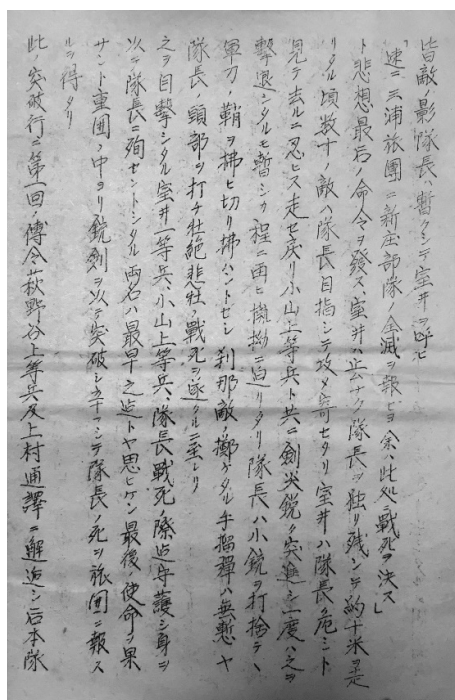 皆敵ノ影隊長ハ暫クシテ室井ヲ呼ビ
「速ニ三浦旅團ニ新庄部隊ノ全滅ヲ報セヨ余ハ此処ニ戰死ヲ決ス」
ト悲想最后ノ命令ヲ發ス、室井ハ止ナク隊長ヲ独リ残シテ約十米ヲ走
リタル頃数十ノ敵ハ隊長目指シテ攻メ寄セタリ室井ハ隊長ノ危シト
見テ去ルニ忍ビス走セ戻リ小山上等兵ト共ニ劍尖鋭ク突進シ一度ハ之ヲ
撃退シタルモ暫シカ程ニ再ヒ擲拗ニ迫リタリ隊長ハ小銃ヲ打捨テヽ
軍刀ノ鞘ヲ拂ヒ切リ拂ハントセシ刹那敵ノ擲ゲタル手榴彈ハ無慙ヤ
隊長ノ頭部ヲ打チ壮絶悲壮ノ戰死ヲ遂クルニ至レリ
之ヲ目撃シタル室井一等兵、小山上等兵、隊長戰死ノ際迄守護シ身ヲ
以テ隊長ニ殉セントシタル両名ハ最早之迄トヤ思ヒケン最後ノ使命ヲ果
サント重囲ノ中ヨリ銃劍ヲ以テ突破シ辛フシテ隊長ノ死ヲ旅団ニ報ス
ルヲ得タリ
此ノ突破行ニ第一回ノ傳令萩野谷上等兵及上村通譯ニ邂逅シ岩本隊